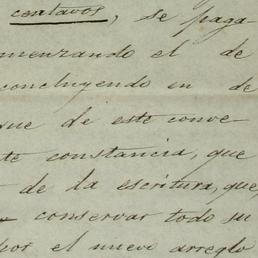 centavos, se paga-
menzando el de
concluyendo en de
que de este conve
te constancia, que
de la escritura, que,
conservar todo su
por el nuevo arreglo